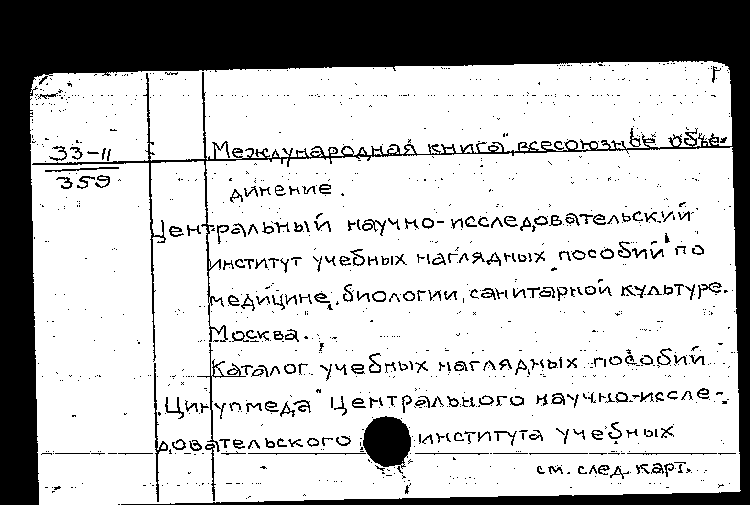 33-II
359
"Международная книга", всесоюзное объе-
динение.
Центральный научно-исследовательский
институт учебных наглядных пособий по
медицине, биологии, санитарной культуре.
Москва.
Каталог учебных наглядных пособий
"Цинупмеда" Центрального научно-иссле-
довательского института учебных
см. след. карт.